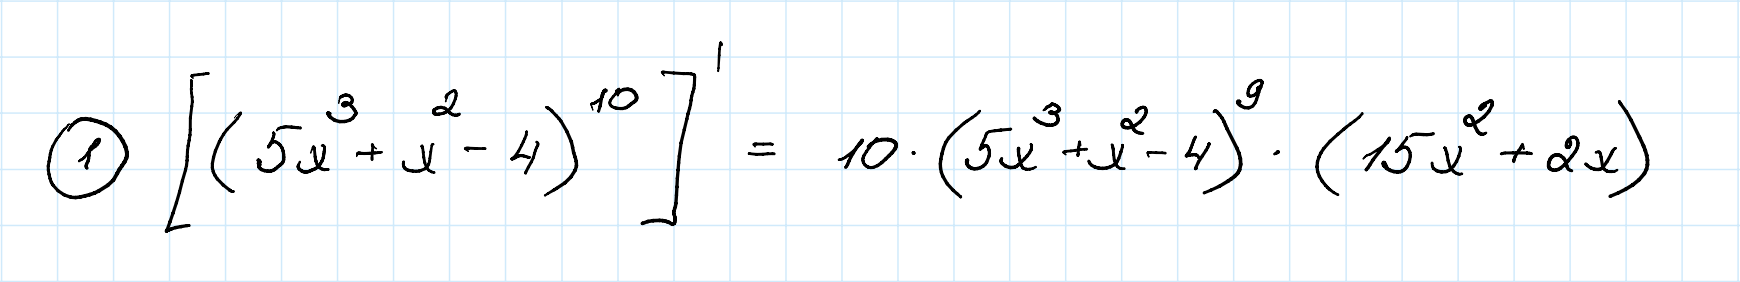 ① [(5x³ + x² - 4)¹⁰]' = 10 · (5x³ + x² - 4)⁹ · (15x² + 2x)